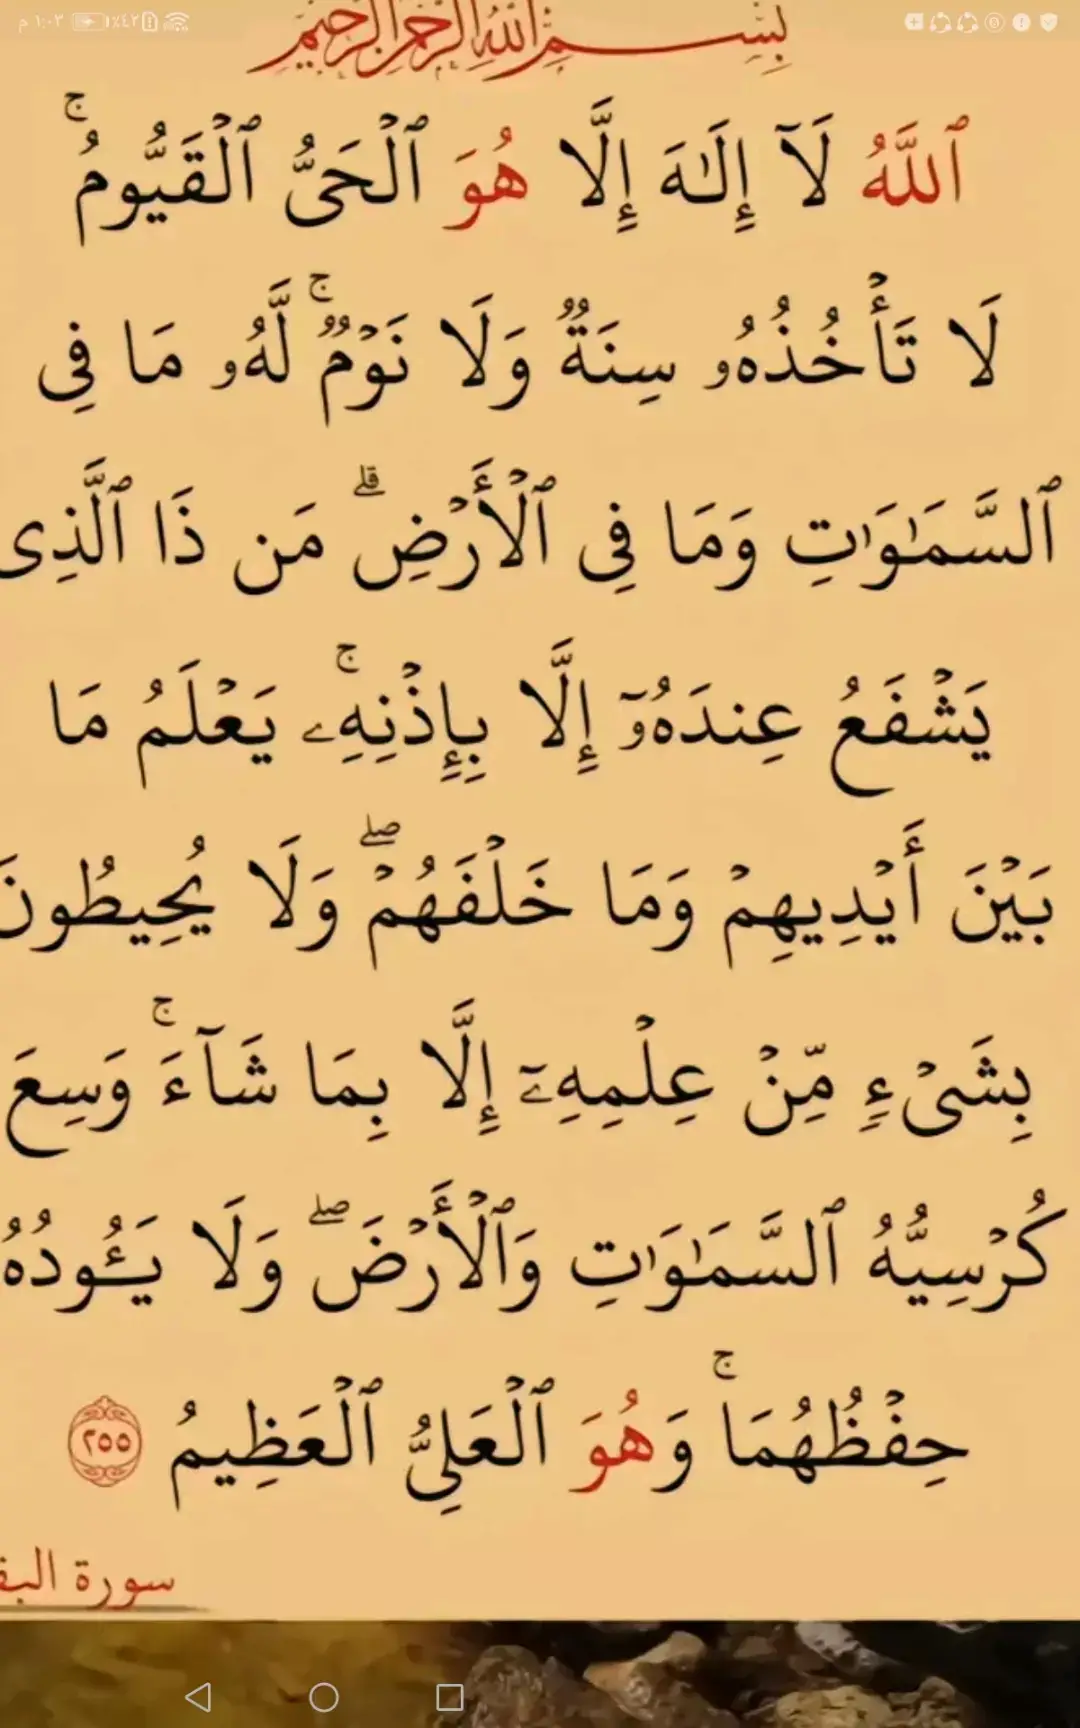 م ١:٠٣ ٪٤٢
بِسْمِ ٱللَّهِ ٱلرَّحْمَٰنِ ٱلرَّحِيمِ
ٱللَّهُ لَآ إِلَٰهَ إِلَّا هُوَ ٱلْحَىُّ ٱلْقَيُّومُ ۚ
لَا تَأْخُذُهُۥ سِنَةٌ وَلَا نَوْمٌ ۚ لَّهُۥ مَا فِى
ٱلسَّمَٰوَٰتِ وَمَا فِى ٱلْأَرْضِ ۗ مَن ذَا ٱلَّذِى
يَشْفَعُ عِندَهُۥٓ إِلَّا بِإِذْنِهِۦ ۚ يَعْلَمُ مَا
بَيْنَ أَيْدِيهِمْ وَمَا خَلْفَهُمْ ۖ وَلَا يُحِيطُونَ
بِشَىْءٍ مِّنْ عِلْمِهِۦٓ إِلَّا بِمَا شَآءَ ۚ وَسِعَ
كُرْسِيُّهُ ٱلسَّمَٰوَٰتِ وَٱلْأَرْضَ ۖ وَلَا يَـُٔودُهُ
حِفْظُهُمَا ۚ وَهُوَ ٱلْعَلِىُّ ٱلْعَظِيمُ ٢٥٥
سورة البق